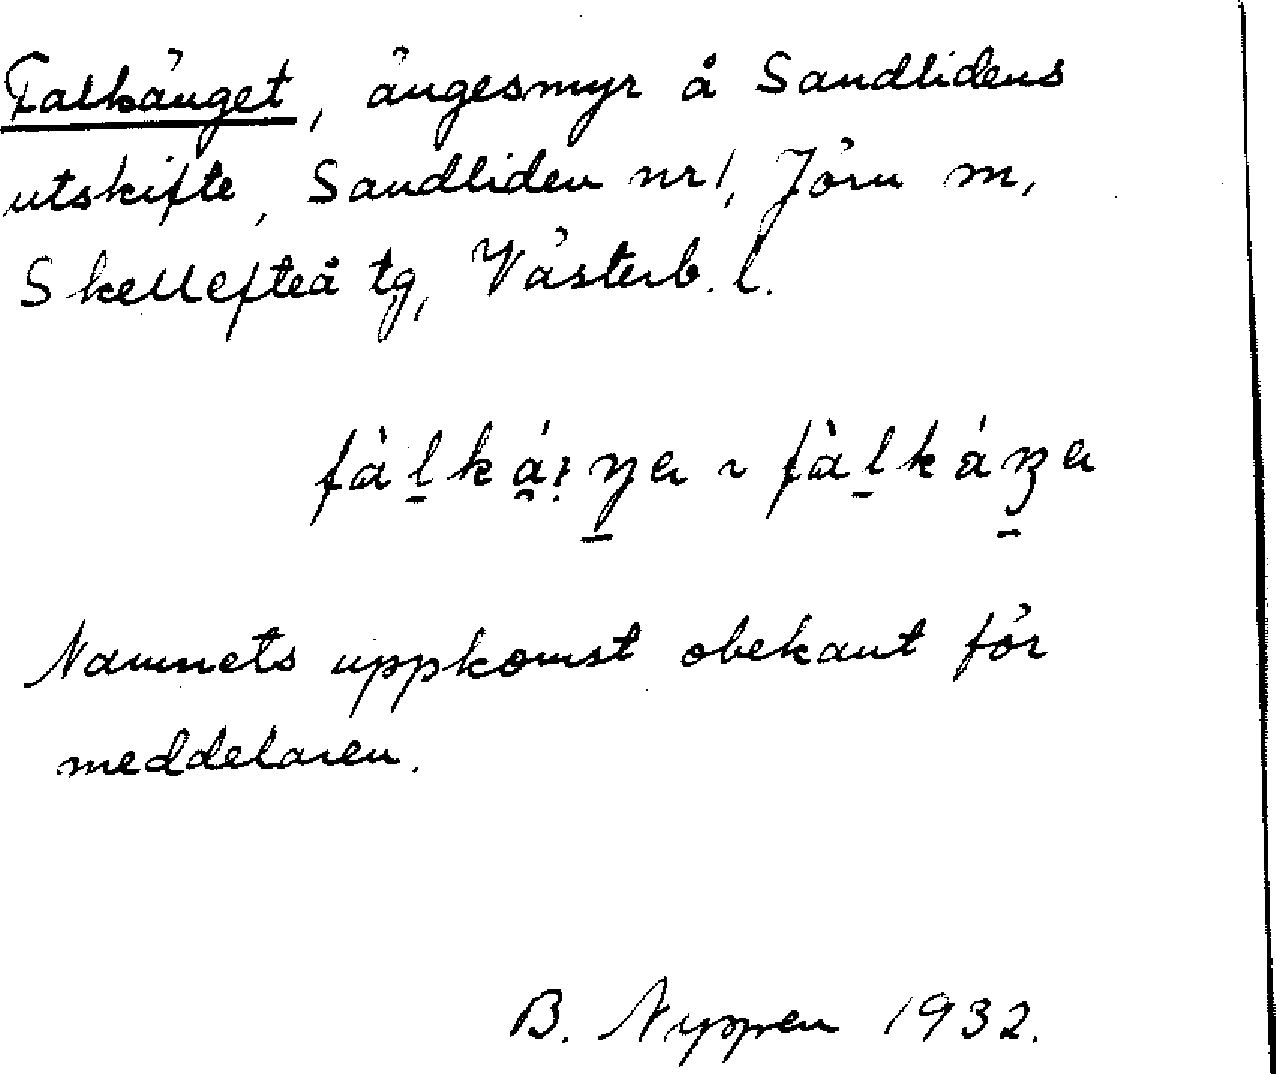 Falkänget, ängesmyr å Sandlidens
utskifte, Sandliden nr 1, Jörn m,
Skellefteå tg, Västerb. l.
Namnets uppkomst obekant för
meddelaren.
B. Nyppen 1932.